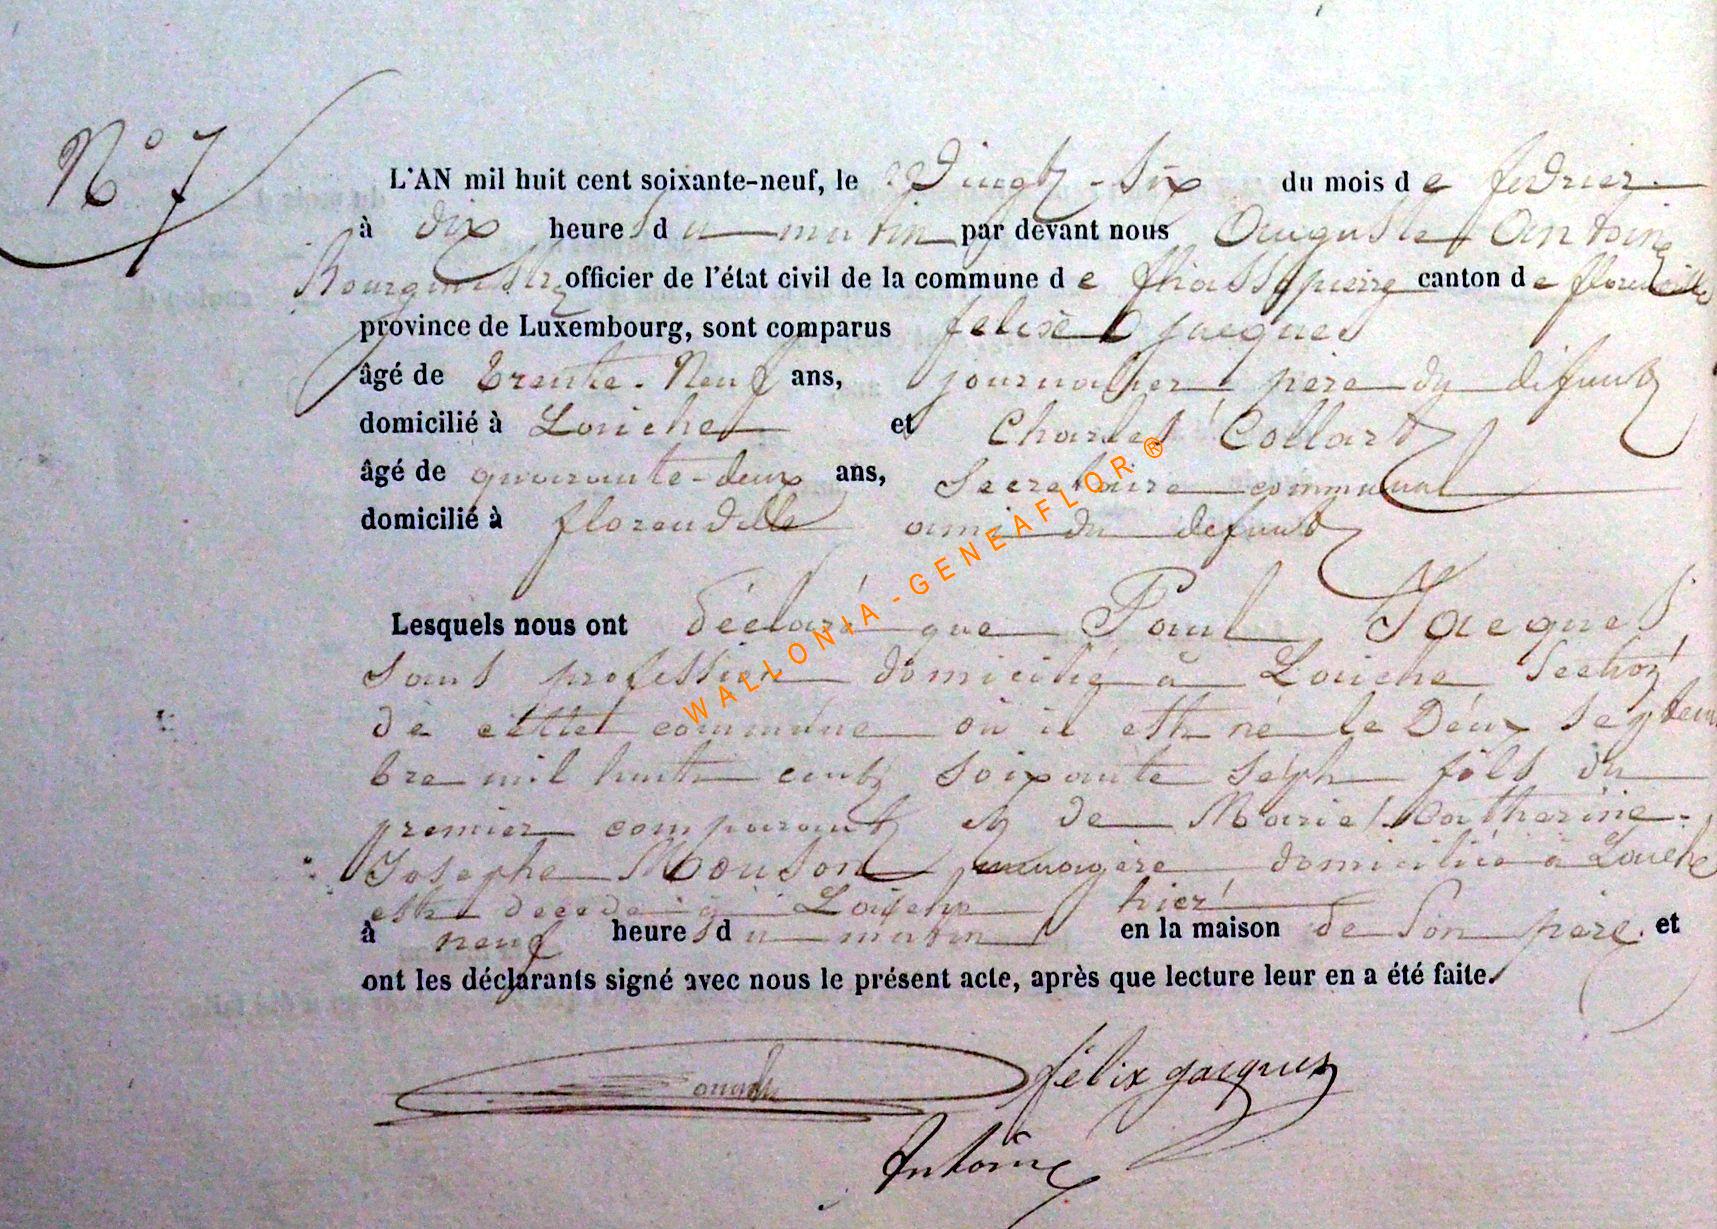 N° 7
L'AN mil huit cent soixante-neuf, le vingt-six du mois de fevrier
à dix heures du matin par devant nous Auguste Antoine
Bourgmestre officier de l'état civil de la commune de canton de florenville
province de Luxembourg, sont comparus felix Jacques
âgé de trente-Neuf ans, journalier père du défunt
domicilié à Laiche et Charles Collart
âgé de quarante-deux ans, Secretaire communal
domicilié à florenville ami du defunt
Lesquels nous ont déclaré que Paul Jacques
sans profession domicilié à Laiche section
de cette commune où il est né le Deux Septem
bre mil huit cent soixante sept fils du
premier comparant et de Marie Catherine
Josephe Mouson menagère domiciliée à Laiche
est decede à Laiche hier
à neuf heures du matin en la maison de son père. et
ont les déclarants signé avec nous le présent acte, après que lecture leur en a été faite.
félix jacques
Antoine
WALLONIA-GENEAFLOR®